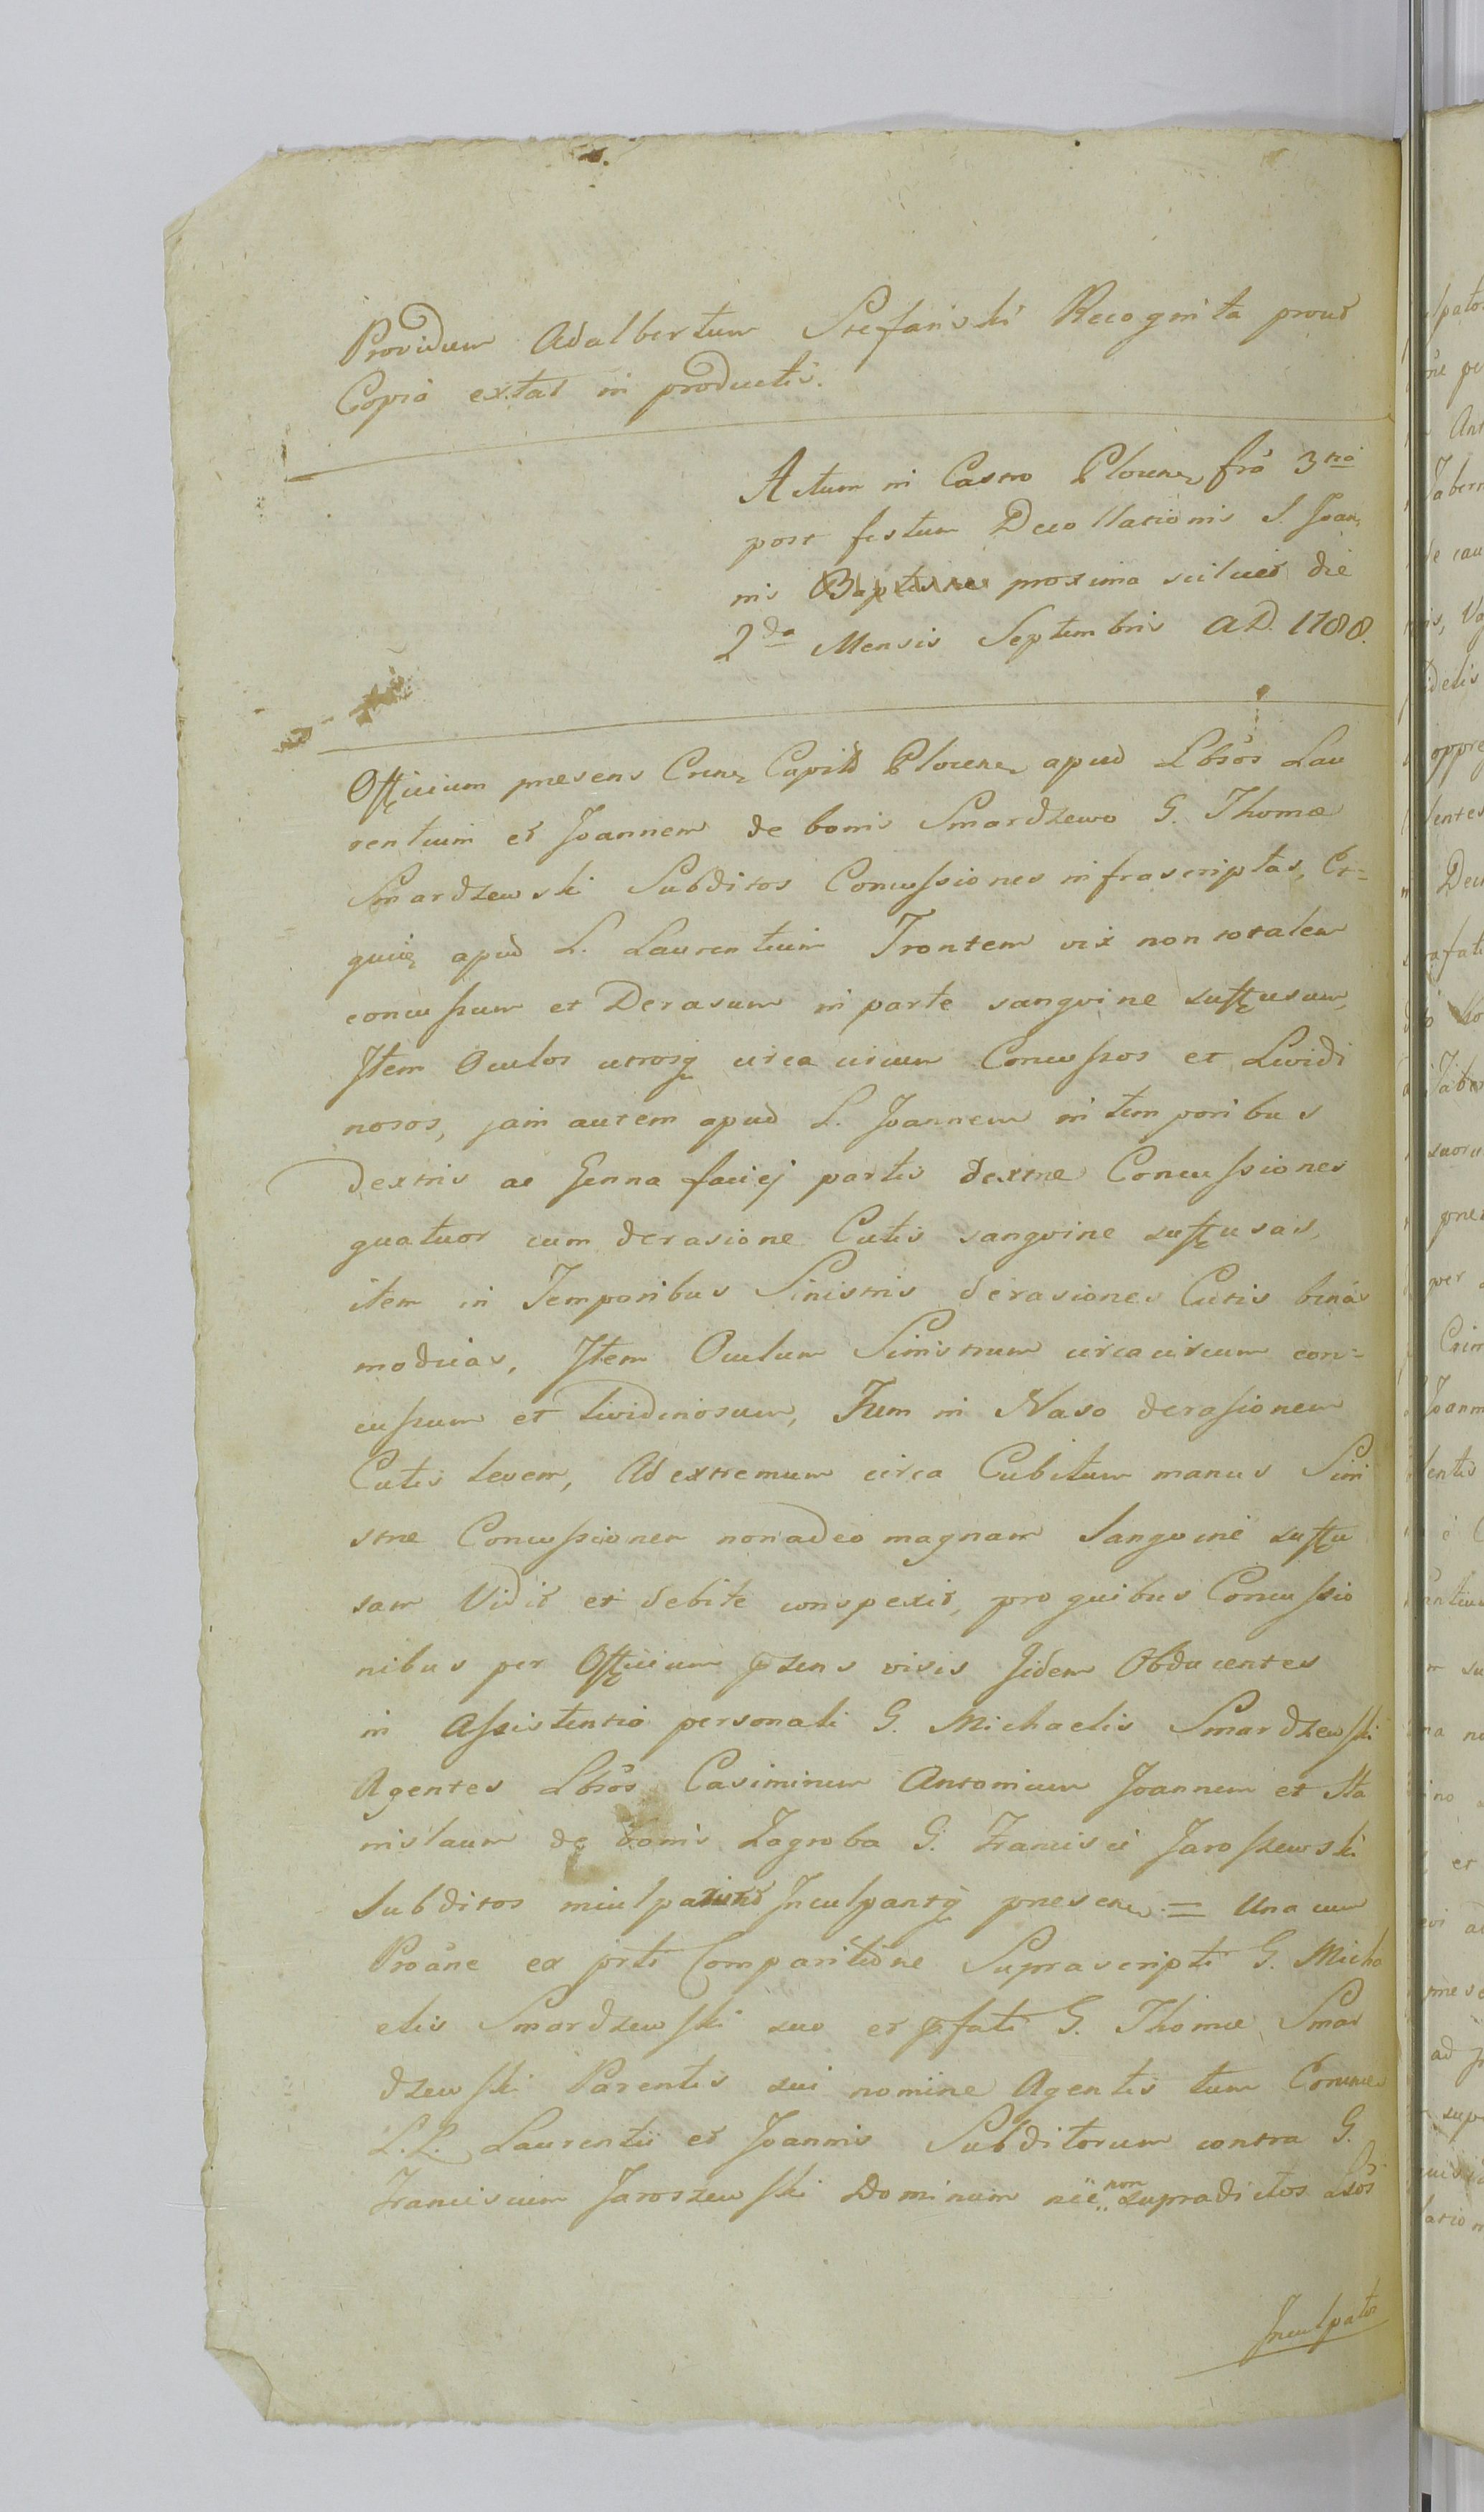 Providum Adalbertum Stefański Recognita prout
Copia extat in productis.
Actum in Castro Plocen fra 3tia
post festum Decollationis S. Joan,
nis Baptistae proxima scilicet die
2da Mensis Septembris A D. 1788.
Officium praesens Cnens Capitle Plocense apud Lbsos Lau
rentium et Joannem de bonis Smardzewo G. Thomae
Smardzewski Subditos Concussiones infrascriptas, Et=
quidem apud L. Laurentium Frontem vix non totalem
concussum et Derasum in parte sangvine suffusum,
Item Oculos utrosq circa circum Concussos et Lividi
nosos, jam autem apud L. Joannem in temporibus
dextris ac Genna faciej partis dextrae Concussiones
quatuor cum derasione Cutis sangvine suffusas,
item in Temporibus Sinistris derasiones Cutis binas
modicas, Item Oculum Sinistrum circa circum con=
cussum et lividinosum, Item in Naso derasionem
Cutis levem, Ad extremum circa Cubitum manus Sini
strae Concussionem non adeo magnam Sangvine suffu
sam Vidit et debite conspexit, pro quibus Concussio
nibus per Officium pzens visis Iidem Obducentes
in Assistentia personali G. Michaelis Smardzewski
Agentes Lbsos Casimirum Antonium Joannem et Sta
nislaum de bonis Zagroba G. Francisci Jaroszewski
Subditos Inculpantq praesen = Una cum
Proane ex prti Comparitione Suprascripti G. Micha
elis Smardzewski suo et pfati G. Thomae Smar
dzewski Parentis sui nomine Agentis tum
L.L. Laurentii et Joannis Subditorum contra G.
Franciscum Jaroszewski Dominum nec non supradictos Lbsos
Inculpatos